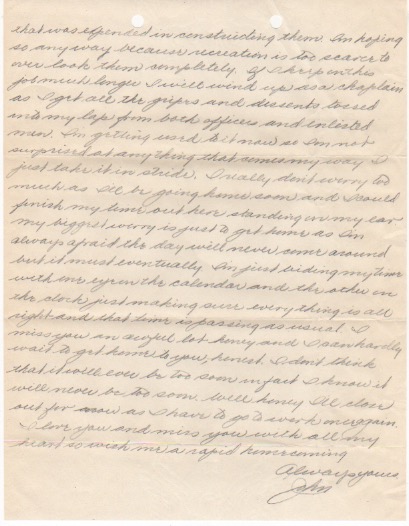 that was expended in constructing them. Im hoping
so anyway because recreation is too scarce to
over look them completely. If I keep on this
job much longer I will wind up as a chaplain
as I get all the gripes and dissents tossed
into my lap from both officers and enlisted
men. Im getting used to it now so Im not
surprised at anything that comes my way I
just take it in stride. I really dont worry too
much as Ill be going home soon and I could
finish my time out here standing on my ear
my biggest worry is just to get home as Im
always afraid the day will never come around
but it must eventually. Im just biding my time
with one eye on the calendar and the other on
the clock just making sure everything is all
right and that time is passing as usual. I
miss you an awful lot honey and I can hardly
wait to get home to you, honest. I dont think
that it will ever be too soon in fact I know it
will never be too soon. Well honey Ill close
out for now as I have to go to work again.
I love you and miss you with all my
heart so wish me a rapid homecoming
Always yours
John